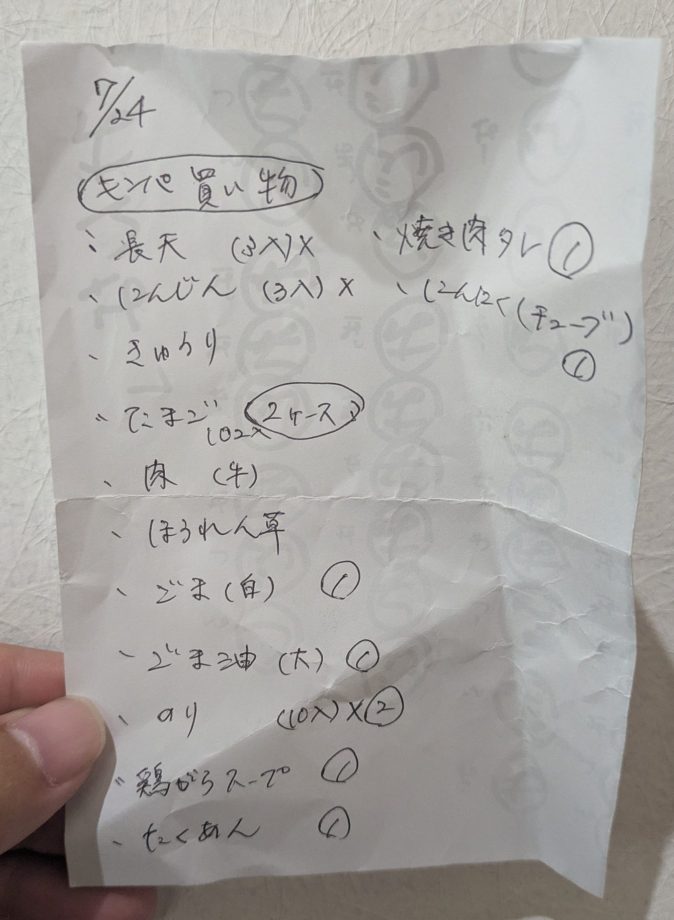 7/24
キンパ 買い物
、長天 (3入)×
、にんじん (3入) ×
、きゅうり
、たまご 10コ入 2ケース
、肉 (牛)
、ほうれん草
、ごま(白) ①
、ごま油 (大) ①
、のり (10入)×②
、鶏がらスープ ①
、たくあん ①
、焼き肉タレ ①
、にんにく(チューブ)
①